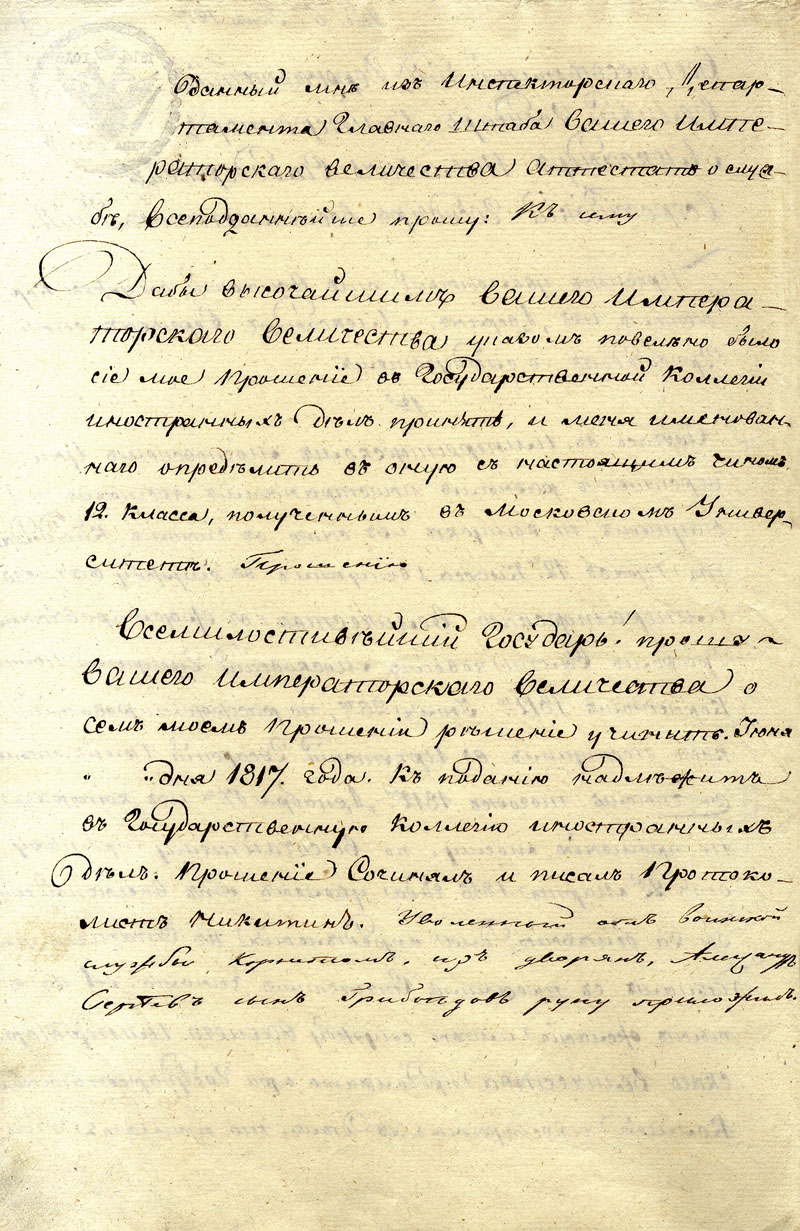 данный мнѣ изъ Инспекторскаго Депар-
тамента Главнаго Штаба Вашего Импе-
раторскаго величества аттестатъ о служ-
бѣ, Всеподданнѣйше прошу: Къ сему
Дабы высочайшимъ вашего Импера-
торскаго Величества указомъ повелѣно было
сіе мое прошеніе въ Государственной Коллегіи
иностранныхъ дѣлъ принять, и меня именован-
наго опредѣлить въ оную съ настоящимъ чиномъ
12. класса, полученнымъ въ Московскомъ Универ-
ситетѣ. Прошенію
Всемилостивѣйшій Государь! прошу
Вашего Императорскаго Величества о
семъ моемъ Прошеніи рѣшеніе учинить. Іюня
„ „ дня 1817. года. Къ поданію надлежитъ
въ Государственную Коллегію иностранныхъ
Дѣлъ. Прошеніе Сочинялъ и писалъ Протоко-
листъ Никитинъ. Уволенный отъ воинской
службы Корнетомъ, изъ дворянъ, Александръ
Сергѣевъ сынъ Грибоѣдовъ руку приложилъ.